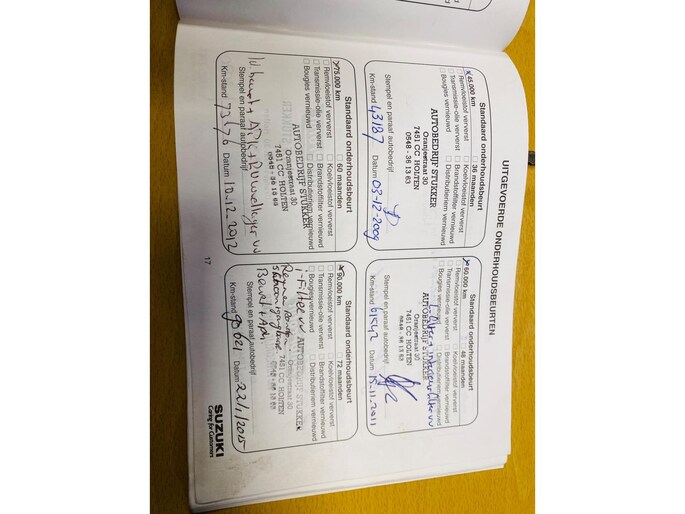 UITGEVOERDE ONDERHOUDSBEURTEN
Standaard onderhoudsbeurt
45.000 km
36 maanden
Remvloeistof ververst
Koelvloeistof ververst
Transmissie-olie ververst
Brandstoffilter vernieuwd
Bougies vernieuwd
Distributieriem vernieuwd
AUTOBEDRIJF STUKKER
Oranjestraat 30
7451 CC HOLTEN
0548 - 36 13 63
Stempel en paraaf autobedrijf
Km-stand 43187 Datum 03-12-2009
Standaard onderhoudsbeurt
60.000 km
48 maanden
Remvloeistof ververst
Koelvloeistof ververst
Transmissie-olie ververst
Brandstoffilter vernieuwd
Bougies vernieuwd
Distributieriem vernieuwd
AUTOBEDRIJF STUKKER
Oranjestraat 30
7451 CC HOLTEN
0548 - 36 13 63
Stempel en paraaf autobedrijf
Km-stand 61542 Datum 15.11.2011
Standaard onderhoudsbeurt
75.000 km
60 maanden
Remvloeistof ververst
Koelvloeistof ververst
Transmissie-olie ververst
Brandstoffilter vernieuwd
Bougies vernieuwd
Distributieriem vernieuwd
AUTOBEDRIJF STUKKER
Oranjestraat 30
7451 CC HOLTEN
0548 - 36 13 63
Stempel en paraaf autobedrijf
Km-stand 73676 Datum 10.12.2012
Standaard onderhoudsbeurt
90.000 km
72 maanden
Remvloeistof ververst
Koelvloeistof ververst
Transmissie-olie ververst
Brandstoffilter vernieuwd
Bougies vernieuwd
Distributieriem vernieuwd
i-Filter vv
AUTOBEDRIJF STUKKER
Oranjestraat 30
7451 CC HOLTEN
0548 - 36 13 63
Beurt + Apk
Stempel en paraaf autobedrijf
Km-stand 90621 Datum 22/1/2015
17
SUZUKI
Caring for Customers